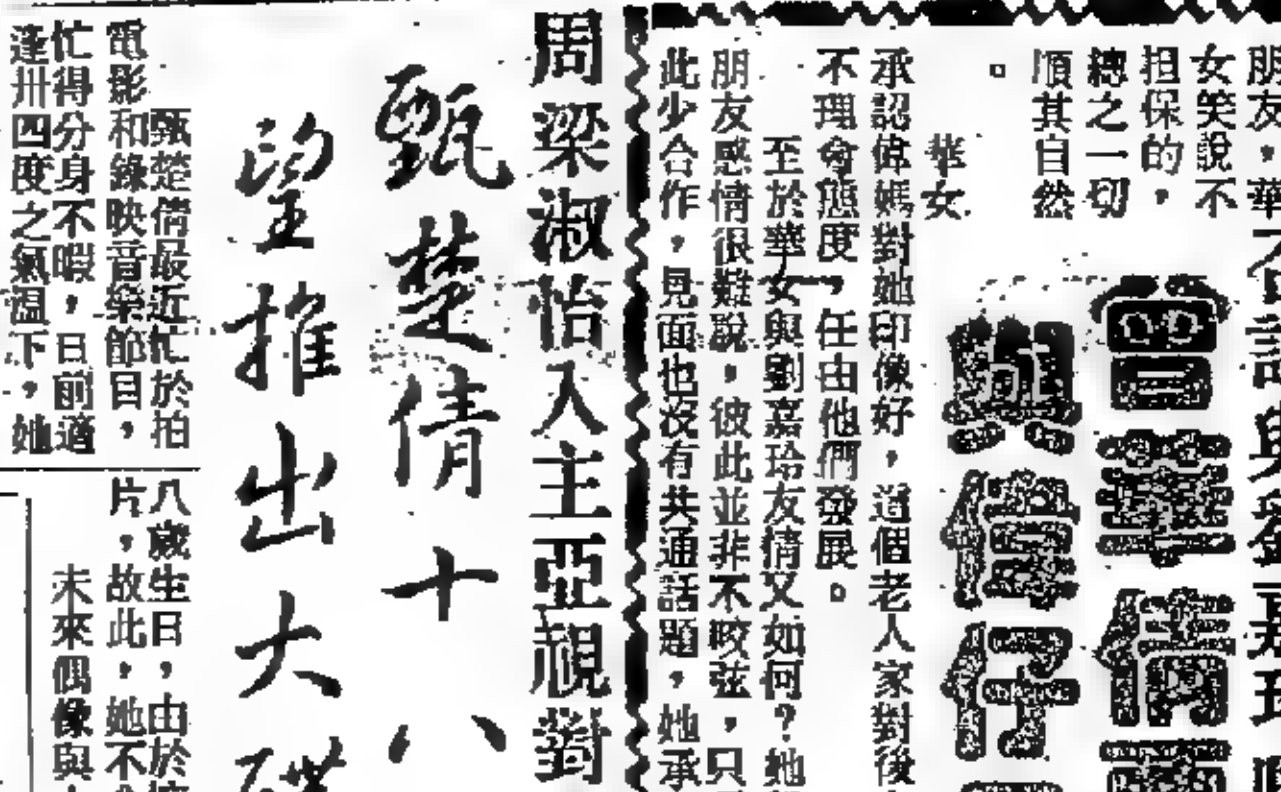 朋友，華
女笑說不
担保的，
總之一切
順其自然
。
曾華倩
與偉仔
華女
承認偉媽對她印像好，這個老人家對後
不理會態度，任由他們發展。
至於華女與劉嘉玲友情又如何？她
朋友感情很難說，彼此並非不咬弦，只
此少合作，見面也沒有共通話題，她承
周梁淑怡入主亞視對
甄楚倩十八
望推出大碟
甄楚倩最近忙於拍
電影和錄映音樂節目，
忙得分身不暇，日前適
逢卅四度之氣溫下，她
八歲生日，由於
片，故此，她不
未來偶像與